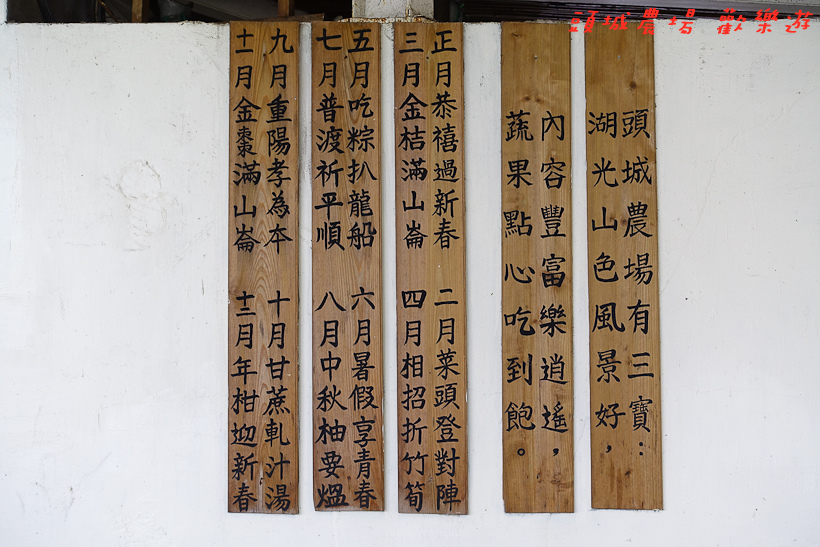 頭城農場 歡樂遊
頭城農場有三寶：
湖光山色風景好，
內容豐富樂逍遙，
蔬果點心吃到飽。
正月恭禧過新春 二月菜頭登對陣
三月金桔滿山崙 四月相招折竹筍
五月吃粽扒龍船 六月暑假享青春
七月普渡祈平順 八月中秋柚要熅
九月重陽孝為本 十月甘蔗軋汁湯
十一月金棗滿山崙 十二月年柑迎新春